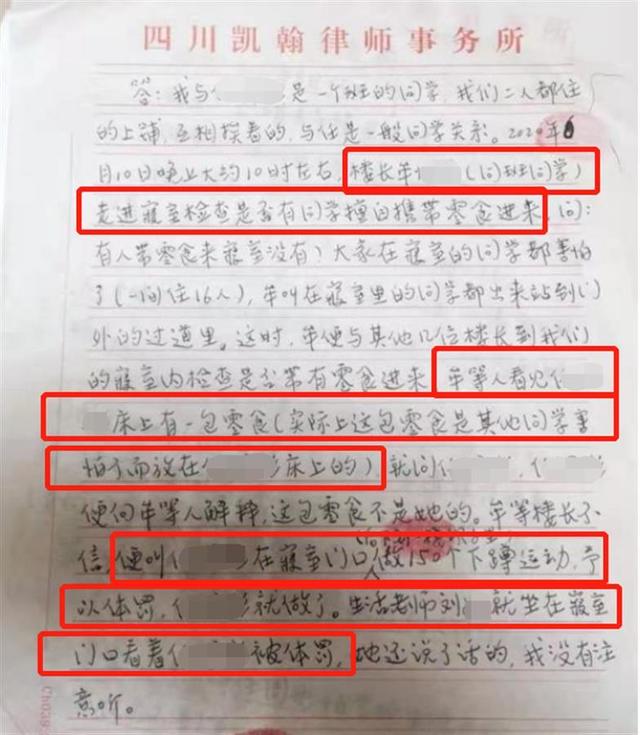 四川凯翰律师事务所
答：我与任 是一个班的同学，我们二人都住
的上铺，互相挨着的，与任是一般同学关系。2020年6
月10日晚上大约10时左右，楼长牟 （同班同学）
走进寝室检查是否有同学擅自携带零食进来，问：
有人带零食来寝室没有？大家在寝室的同学都害怕
了（一间住16人），牟叫在寝室里的同学都出来站到门
外的过道里。这时，牟便与其他几位楼长到我们
的寝室内检查是否带有零食进来，牟等人看见任
床上有一包零食（实际上这包零食是其他同学害
怕了而放在任 床上的）就问任 ，任
便向牟等人解释，这包零食不是她的。牟等楼长不
信，便叫任 在寝室门口做150个下蹲运动，予
以体罚，任 就做了。生活老师刘 就坐在寝室
门口看着任 被体罚，她还说了话的，我没有注
意听。